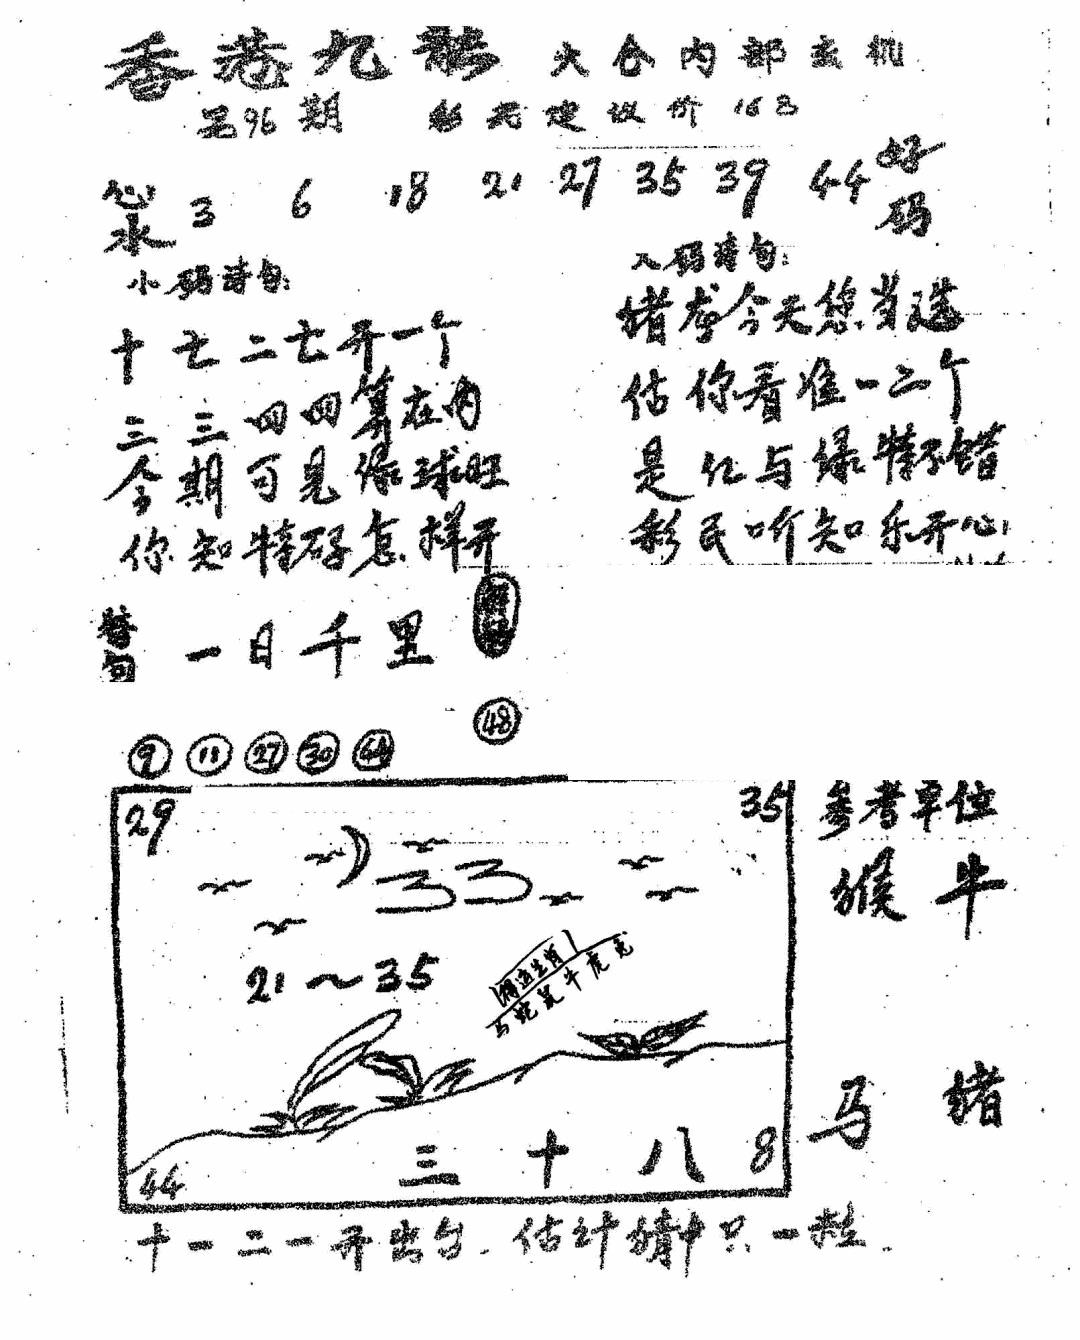 香港九龙 六合内部玄机
第96期 彩民建议价 163
心水 3 6 18 21 27 35 39 44 好码
小码诗句:
十七二七开一个
三三四四算在内
今期可见绿球旺
你知特码怎样开
入码诗句:
猪龙今天您当选
估你看准一二个
是红与绿特不错
彩民听知乐开心
替句 一日千里
48
9 11 27 30 44
29 35
21～35
马蛇鼠牛虎兔
44 三十八 8
参考单位
猴 牛
马 猪
十一二一开出台.估计猜中只一粒.